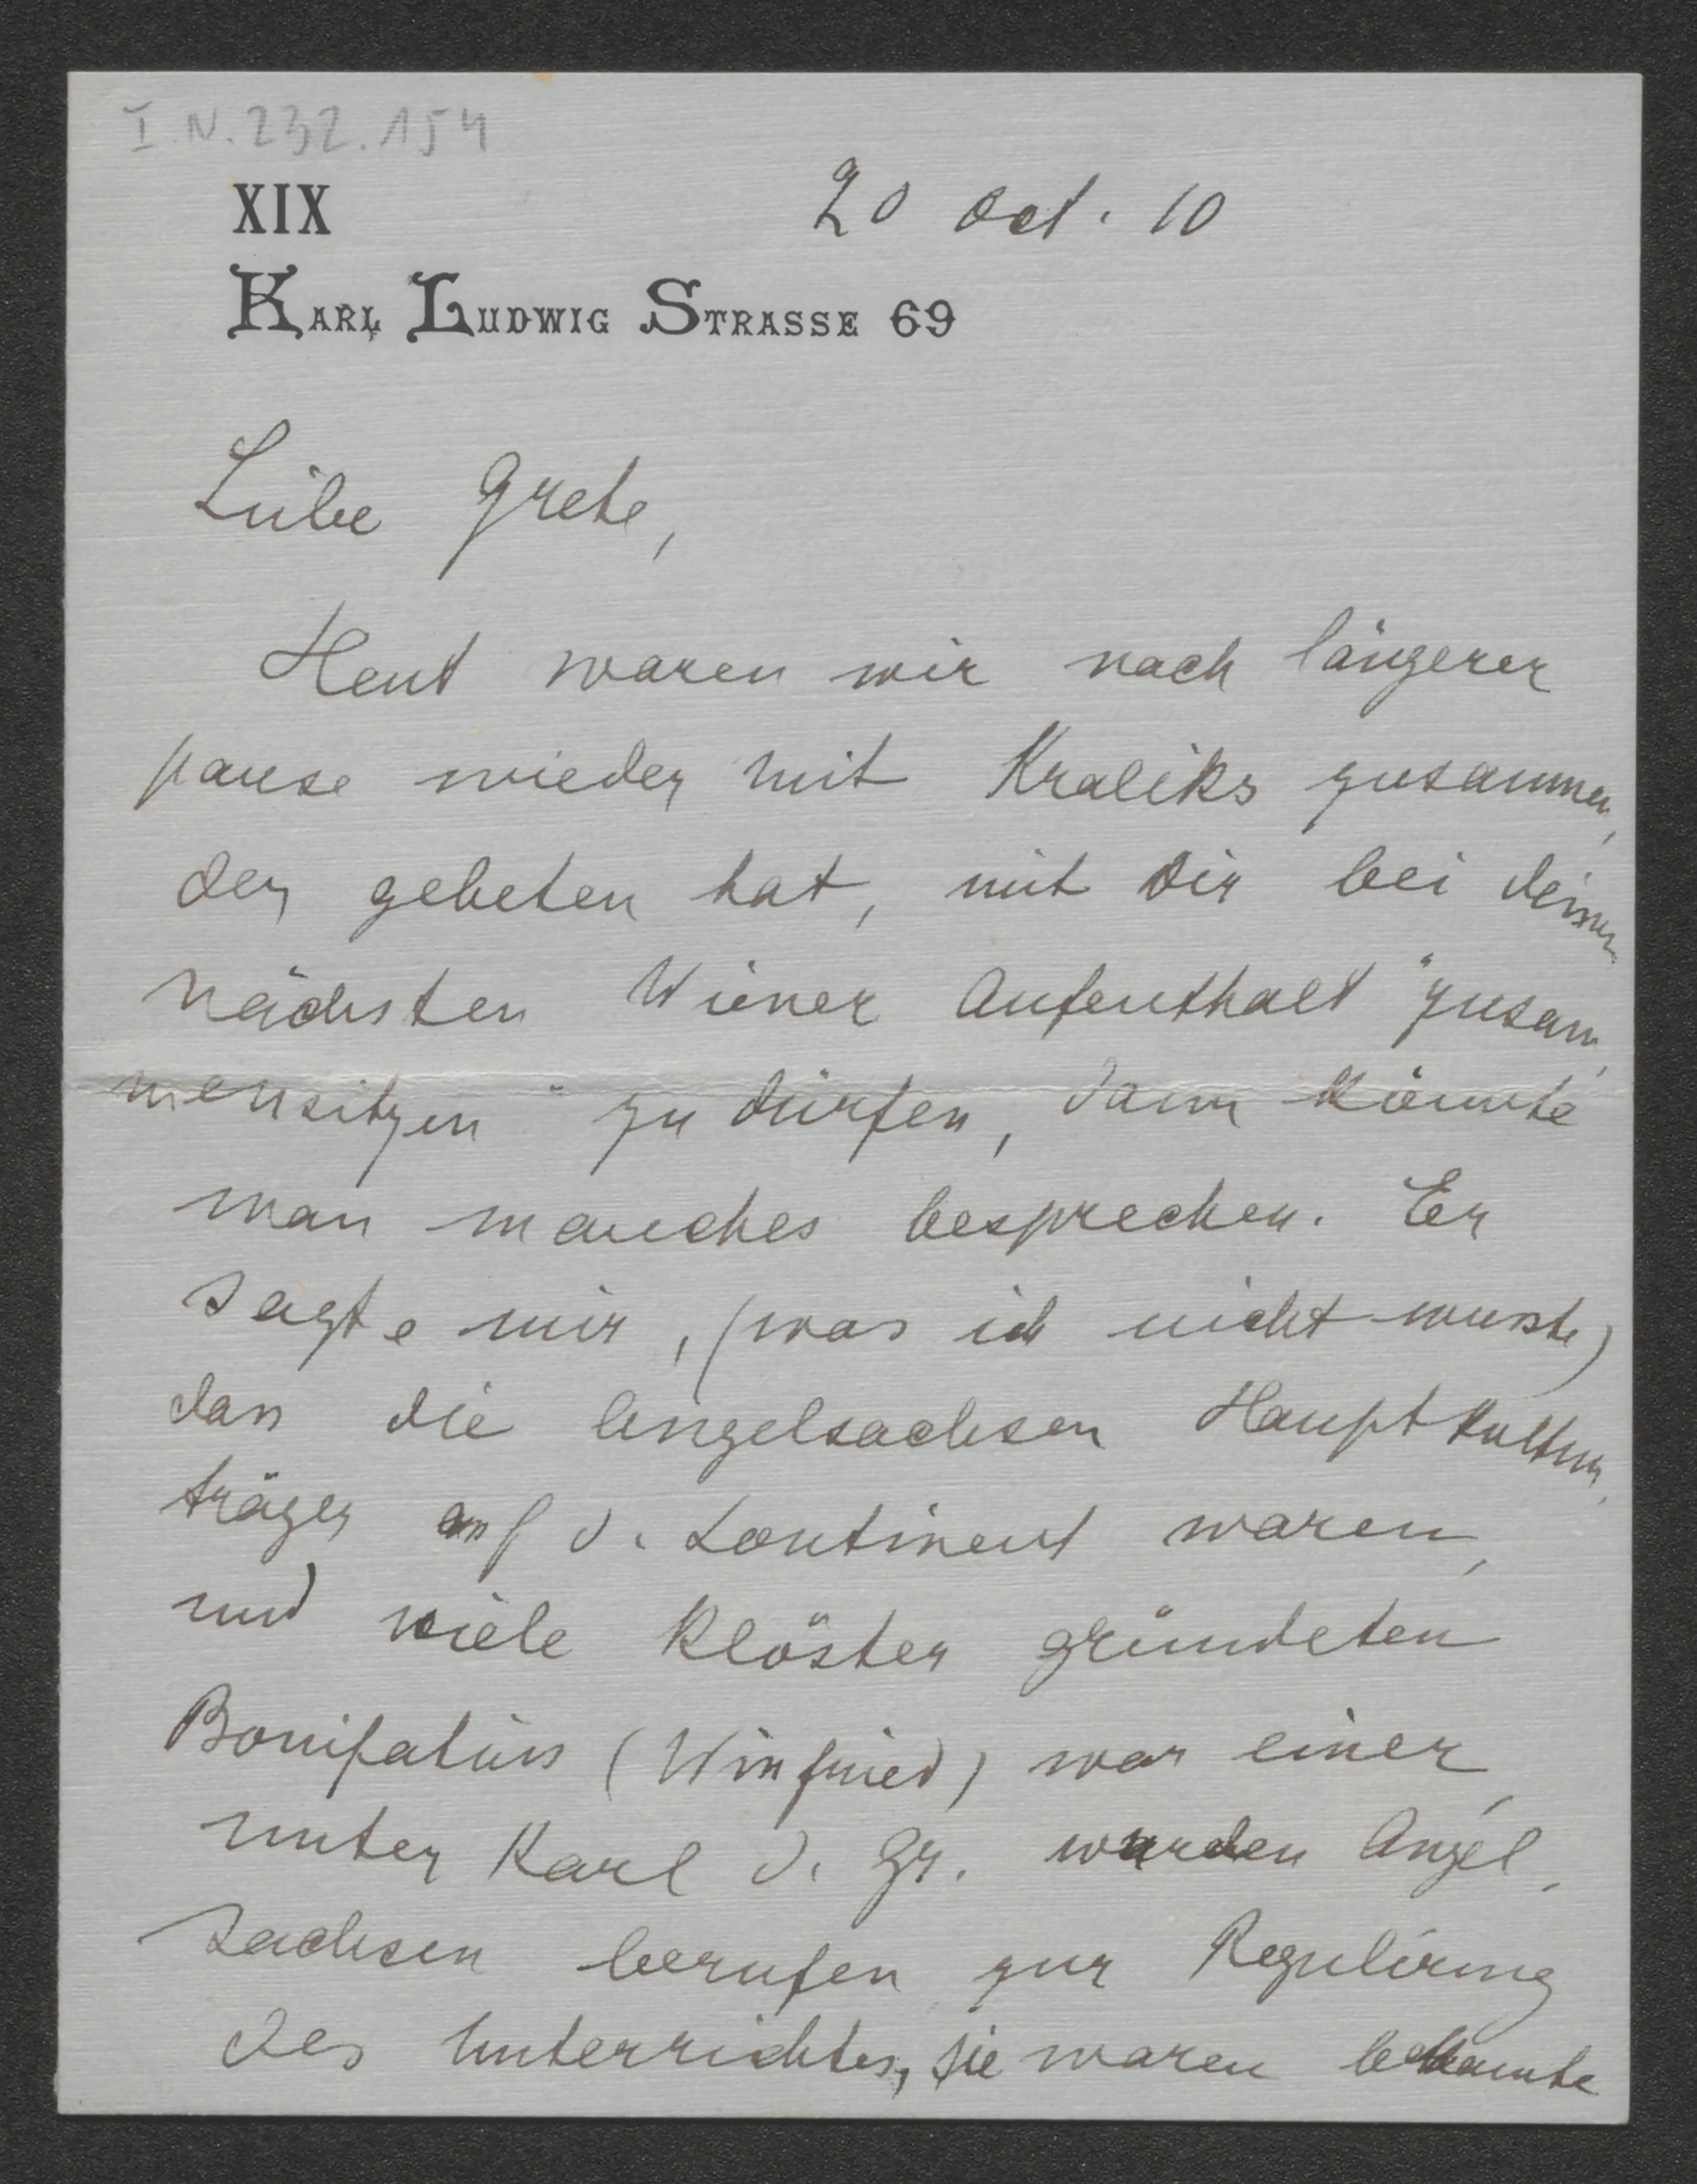 I.N. 232.154
XIX
20 Oct. 10
KARL LUDWIG STRASSE 69
Liebe Grete,
Heut waren wir nach längerer
pause wieder mit Kraliks zusammen,
der gebeten hat, mit Dir bei deinem
nächsten Wiener Aufenthalt "zusam
mensitzen" zu dürfen, dann könnte
man manches besprechen. Er
sagte mir, (was ich nicht wusste)
dass die Angelsachsen Hauptkultur
träger auf d. Continent waren,
und viele Klöster gründeten
Bonifatius (Winfried) war einer,
unter Karl d. Gr. wurden Angel
sachsen berufen zur Regulirung
des Unterrichtes, sie waren bekannte